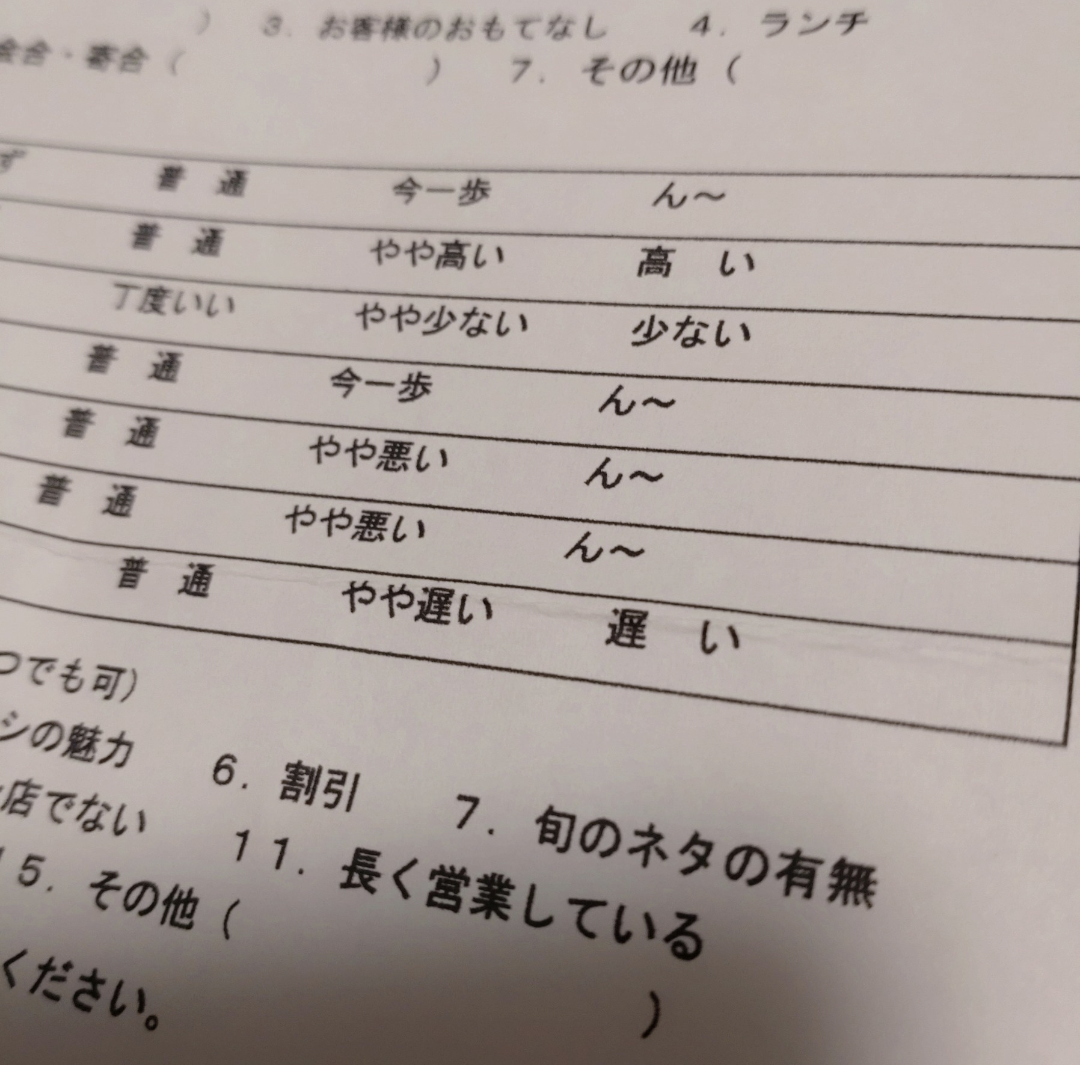 ) 3. お客様のおもてなし 4. ランチ
会合・寄合( ) 7. その他(
ず 普 通 今一歩 ん〜
普 通 やや高い 高 い
丁度いい やや少ない 少ない
普 通 今一歩 ん〜
普 通 やや悪い ん〜
普 通 やや悪い ん〜
普 通 やや遅い 遅 い
つでも可)
シの魅力 6. 割引 7. 旬のネタの有無
店でない 11. 長く営業している
15. その他( )
ください。